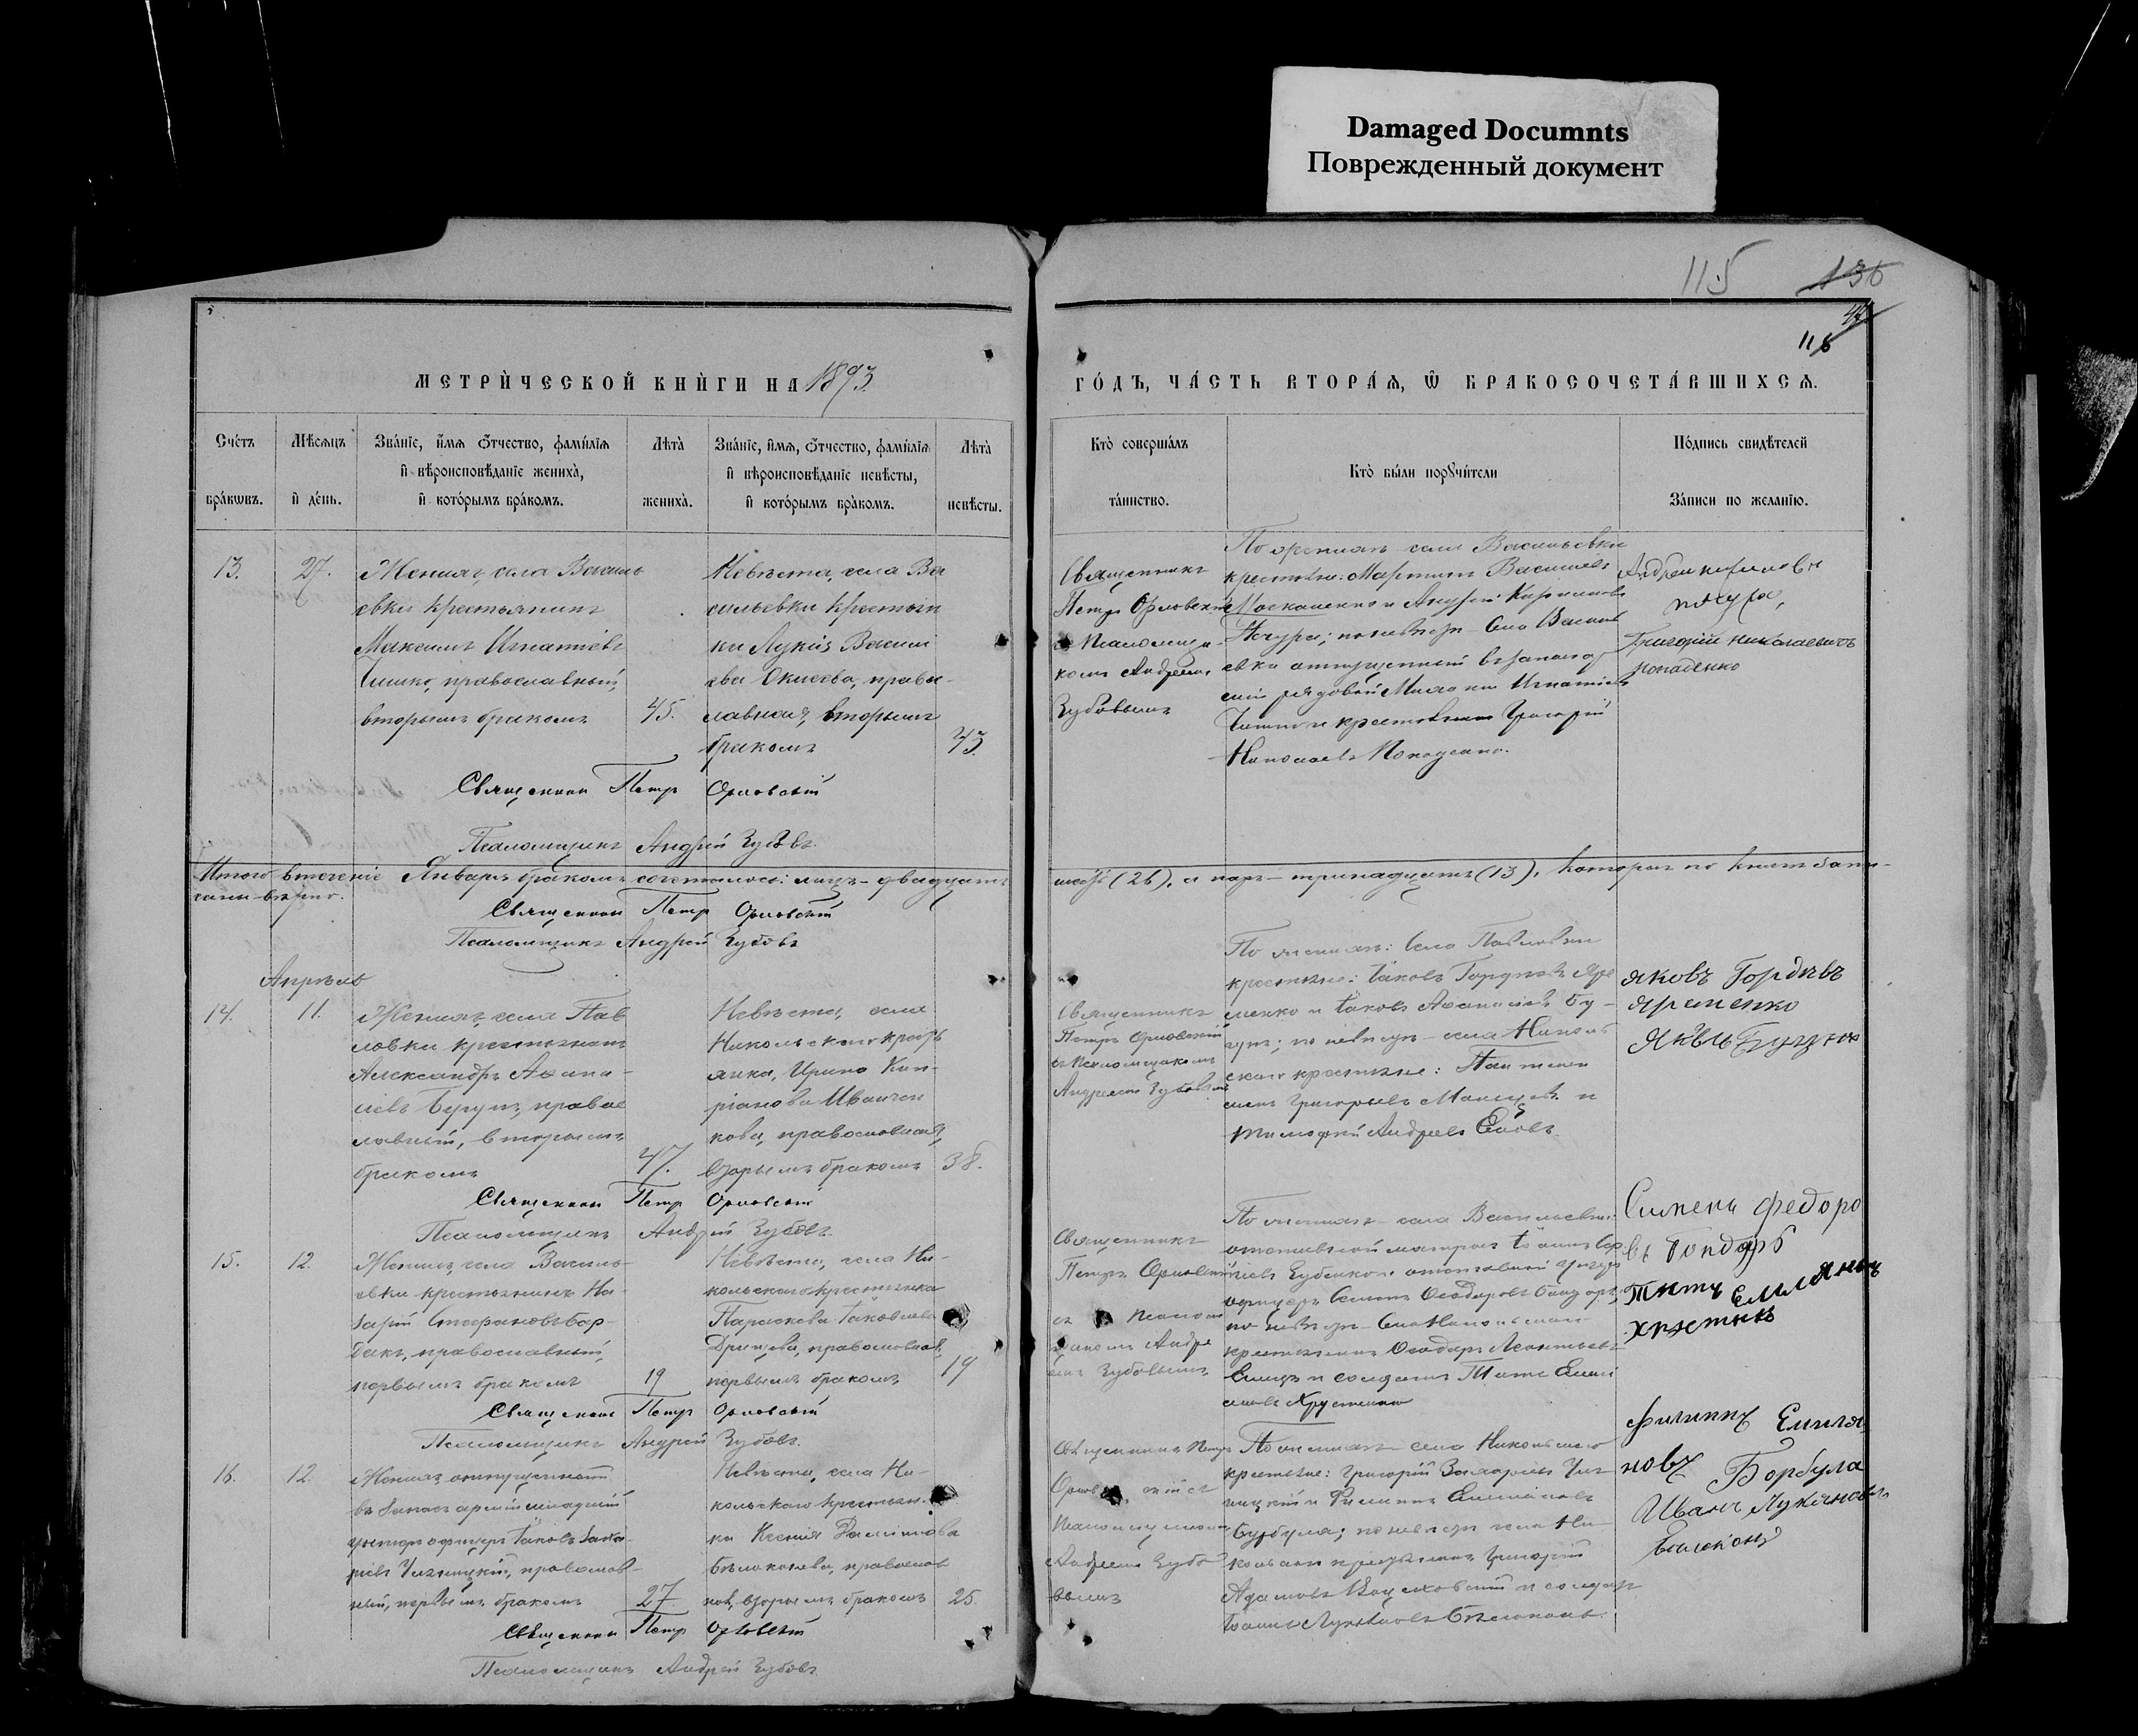 Damaged Documnts
Поврежденный документ
115 136
44
116
МЕТРИЧЕСКОЙ КНИГИ НА 1893
ГОДЪ, ЧАСТЬ ВТОРАЯ, Ѿ БРАКОСОЧЕТАВШИХСЯ.
Счетъ браковъ.
Мѣсяцъ и день.
Званіе, имя, отчество, фамилія
и вѣроисповѣданіе жениха,
и которымъ бракомъ.
Лѣта жениха.
Званіе, имя, отчество, фамилія
и вѣроисповѣданіе невѣсты,
и которымъ бракомъ.
Лѣта невѣсты.
Кто совершалъ
таинство.
Кто были поручители
Подпись свидѣтелей
Записи по желанію.
13. 27.
Женихъ, села Василь
евки крестьянинъ
Максимъ Игнатіевъ
Чишко, православный,
вторымъ бракомъ 45.
Невѣста, села Ва
сильевки крестьян
ка Лукія Василі
ева Окисева, правос
лавная, вторымъ
бракомъ 43.
Священникъ
Петръ Орловскій
съ Псаломщи-
комъ Андреемъ
Зубовымъ
По женихѣ села Васильевки
крестьяне: Мартинъ Василіевъ
Москаленко и Андрей Кириловъ
по невѣстѣ – села Василь
евки отпущенный въ запас ар
міи рядовой Игнатіевъ
Чишко и крестьянинъ Григорій
Николаевъ Конаденко.
Андрей Кириловъ
Григорій Николаевичъ
Священникъ Петръ Орловскій
Псаломщикъ Андрей Зубовъ.
Итого въ теченіе Января бракомъ сочеталось: лицъ – двадцать
шесть (26), а паръ – тринадцать (13), которыя по книгѣ запи-
саны вѣрно.
Священникъ Петръ Орловскій
Псаломщикъ Андрей Зубовъ
Апрѣль
14. 11.
Женихъ, села Пав
ловки крестьянинъ
Александръ Афана-
сіевъ Бугунъ, правос
лавный, вторымъ
бракомъ 47.
Невѣста, села
Никольскаго крестъ
янка, Ирина Кип-
ріанова Иванчен
кова, православная,
вторымъ бракомъ 38.
Священникъ
Петръ Орловскій
съ Псаломщикомъ
Андреемъ Зубовымъ
По женихѣ: села Павловки
крестьяне: Іаковъ Гордѣевъ Яре
менко и Іаковъ Афанасіевъ Бу-
гунъ; по невѣстѣ – села Николь
скаго крестьяне: Пантелей
монъ Григорьевъ и
Тимофей Андреевъ
Яковъ Гордѣевъ
Яременко
Священникъ Петръ Орловскій
Псаломщикъ Андрей Зубовъ.
15. 12.
Женихъ, села Василь-
евки крестьянинъ На-
зарій Стефановъ Бор-
дакъ, православный,
первымъ бракомъ 19
Невѣста, села Ни-
кольскаго крестьянка
Параскева Іаковлева
Дрищева, православная,
первымъ бракомъ 19
Священникъ
Петръ Орловскій
съ Псалом
щикомъ Андре
емъ Зубовымъ
По женихѣ – села Васильевки:
отставной матросъ Іоаннъ
Зубенко и отставной унтеръ
офицеръ Семенъ Ѳеодоровъ Бондарь,
по невѣстѣ – села Никольскаго
крестьянинъ Ѳеодоръ Леонтьевъ
и солдатъ Титъ Емил
іановъ
Симень Федоро
въ Бондарь
Титъ Емилянов
Священникъ Петръ Орловскій
Псаломщикъ Андрей Зубовъ.
16. 12.
Женихъ, отпущенный
въ запасъ арміи младшій
унтеръ офицеръ Іаковъ Заха
ріевъ православ-
ный, первымъ бракомъ 27.
Невѣста, села Ни-
кольскаго крестьян-
ка Ксенія Даміанова
Бѣлоконева, православ
ная, вторымъ бракомъ 25.
Священникъ Петръ
Орловскій съ
Псаломщикомъ
Андреемъ Зубо
вымъ
По женихѣ – села Никольскаго
крестьяне: Григорій Захаріевъ
и Филиппъ Емиліановъ
Бурбула; по невѣстѣ села Ни-
кольскаго крестьянинъ Григорій
Адамовъ и солдатъ
Іоаннъ Лукіановъ Бѣлоконь.
Филиппъ Емилія
новъ Борбула
Иванъ Лукьяновъ
Священникъ Петръ Орловскій
Псаломщикъ Андрей Зубовъ.